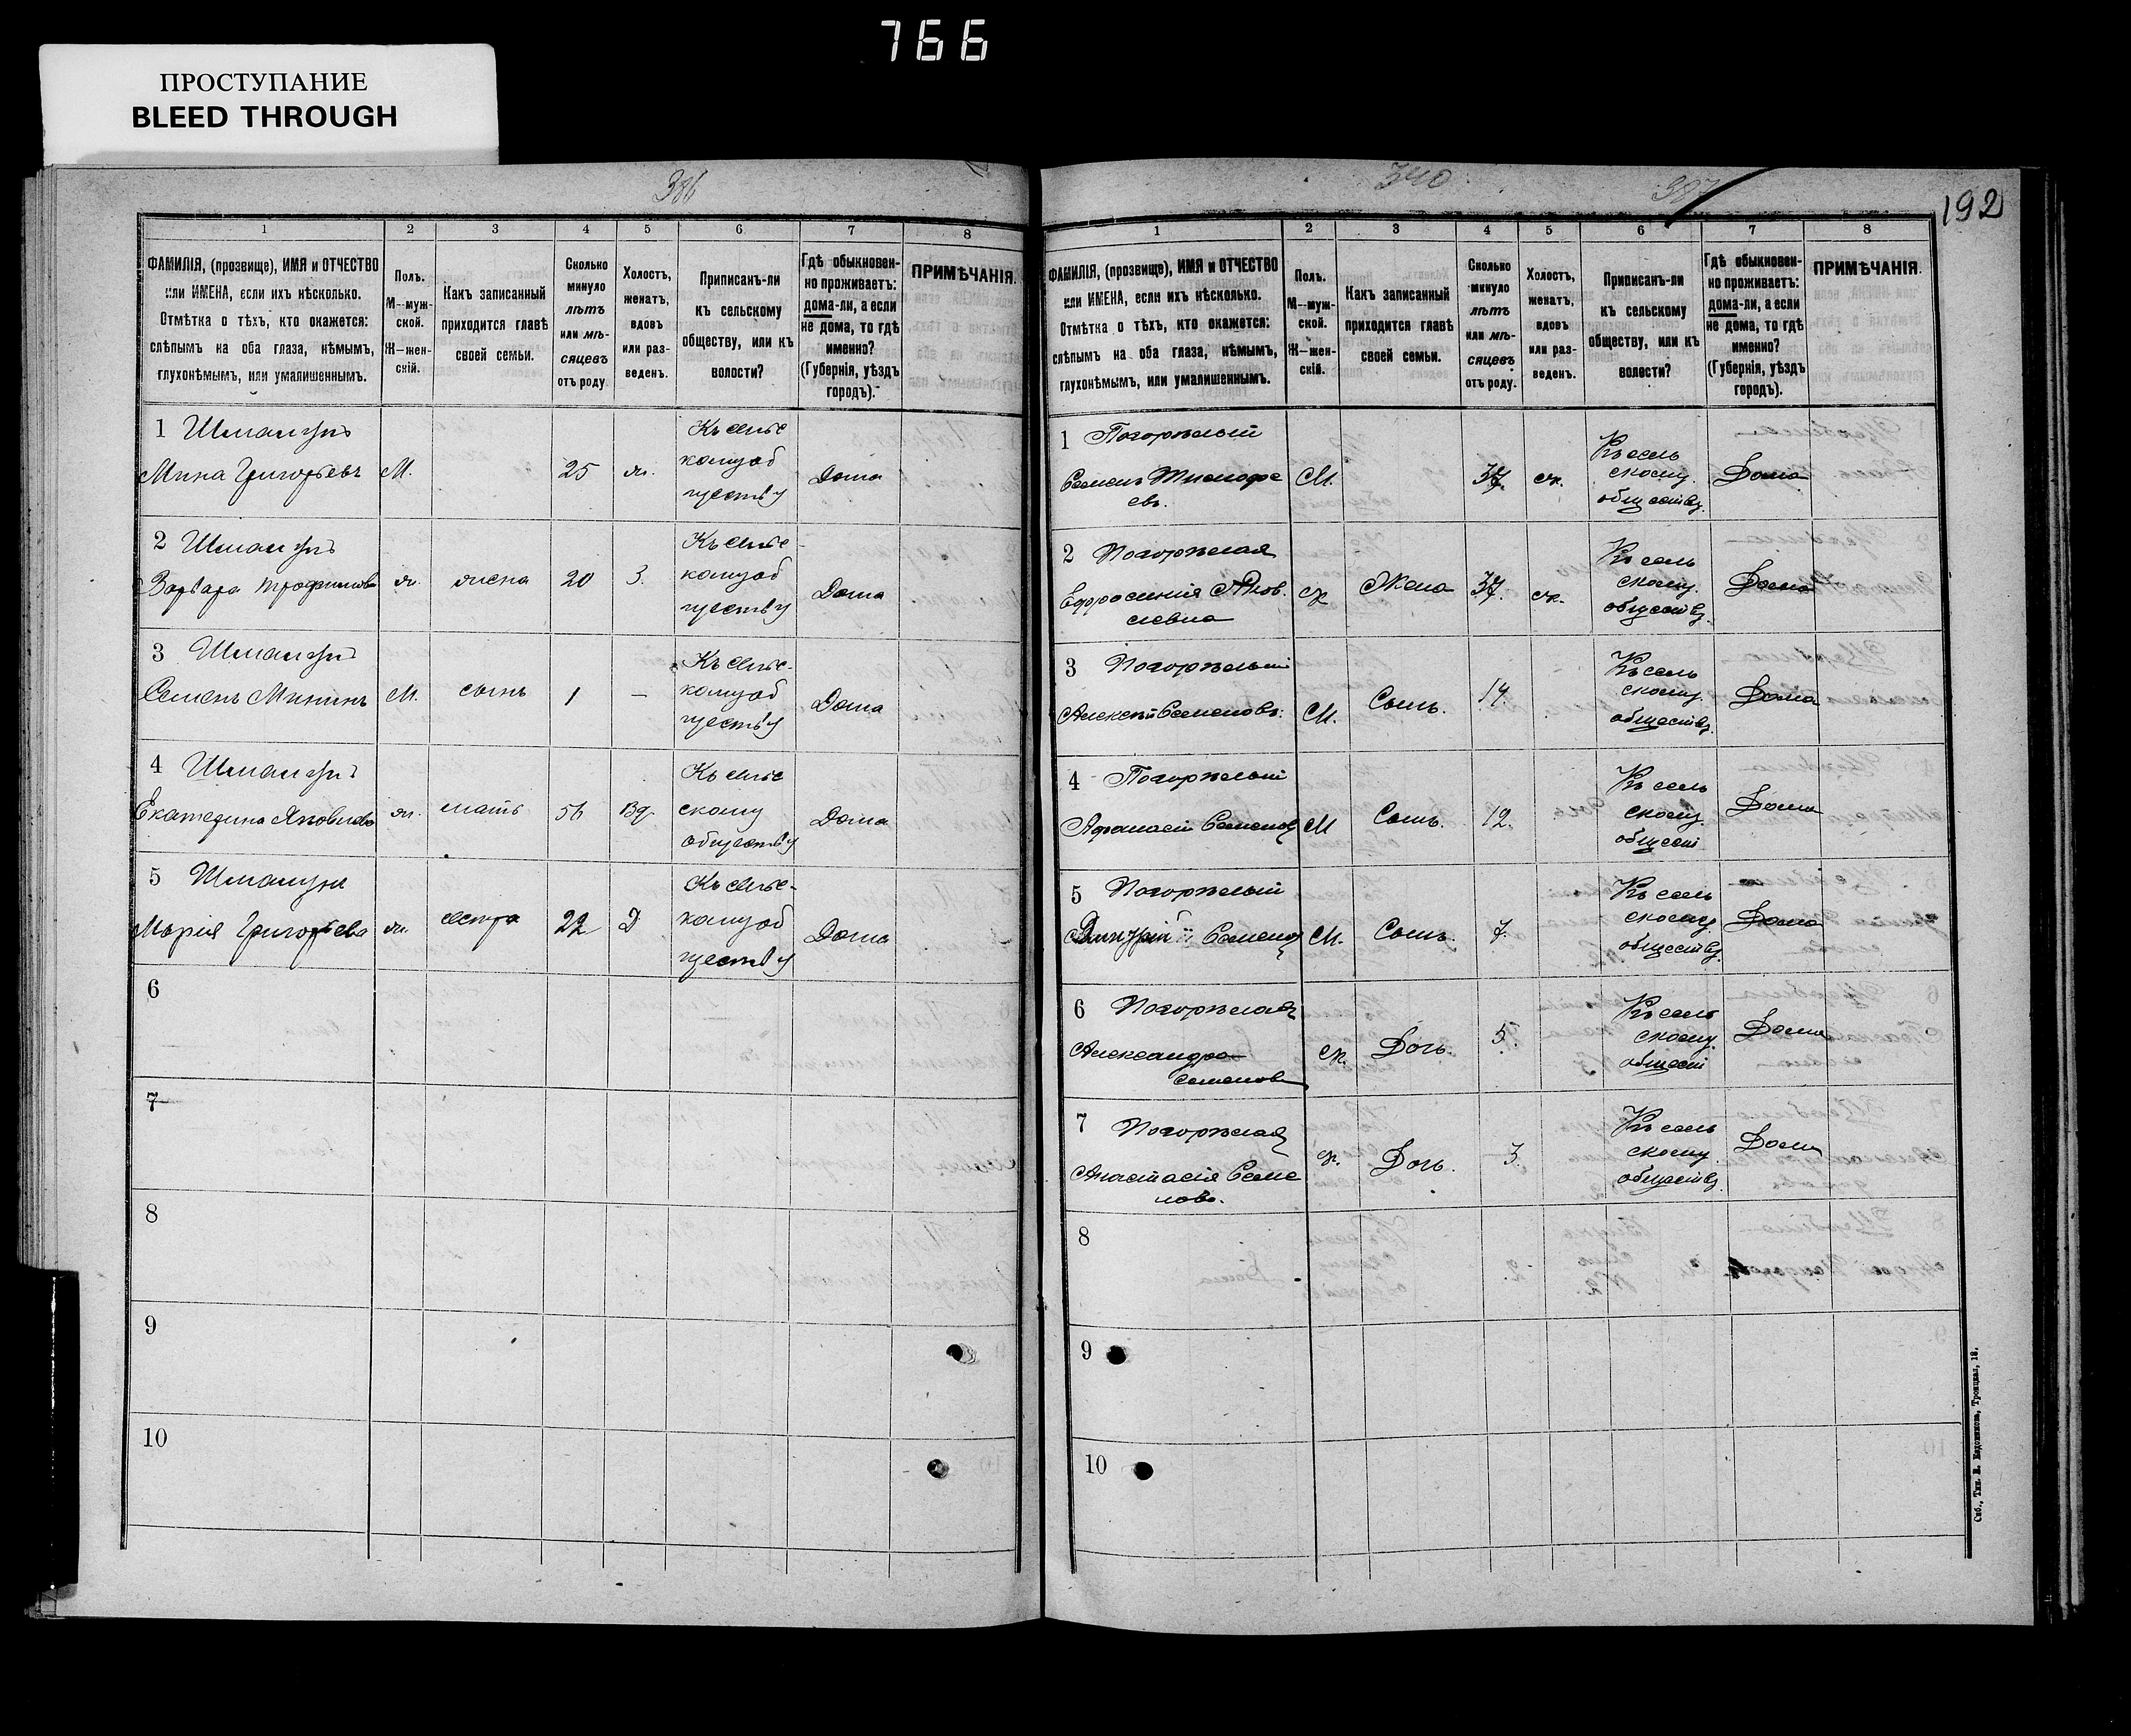 766
ПРОСТУПАНИЕ
BLEED THROUGH
386
1 2 3 4 5 6 7 8
ФАМИЛІЯ, (прозвище), ИМЯ и ОТЧЕСТВО или ИМЕНА, если ихъ нѣсколько. Отмѣтка о тѣхъ, кто окажется: слѣпымъ на оба глаза, нѣмымъ, глухонѣмымъ, или умалишеннымъ.
Полъ. М--муж- ской. Ж--жен- скій.
Какъ записанный приходится главѣ своей семьи.
Сколько минуло лѣтъ или мѣ- сяцевъ отъ роду
Холостъ, женатъ, вдовъ или раз- веденъ.
Приписанъ-ли къ сельскому обществу, или къ волости?
Гдѣ обыкновен- но проживаетъ: дома-ли, а если не дома, то гдѣ именно? (Губернія, уѣздъ городъ).
ПРИМѢЧАНІЯ.
1
Мина Григорьевъ М. 25 ж. Дома
2
Варвара Трофимова ж. жена 20 З. Дома
3
Семенъ Мининъ М. сынъ 1 — Дома
4
Екатерина Яковлева ж. мать 56 Вд. скому обществу Дома
5
Марія Григорьева ж. сестра 22 Д Дома
6
7
8
9
10
340
387
192
1 2 3 4 5 6 7 8
ФАМИЛІЯ, (прозвище), ИМЯ и ОТЧЕСТВО или ИМЕНА, если ихъ нѣсколько. Отмѣтка о тѣхъ, кто окажется: слѣпымъ на оба глаза, нѣмымъ, глухонѣмымъ, или умалишеннымъ.
Полъ. М--муж- ской. Ж--жен- скій.
Какъ записанный приходится главѣ своей семьи.
Сколько минуло лѣтъ или мѣ- сяцевъ отъ роду.
Холостъ, женатъ, вдовъ или раз- веденъ.
Приписанъ-ли къ сельскому обществу, или къ волости?
Гдѣ обыкновен- но проживаетъ: дома-ли, а если не дома, то гдѣ именно? (Губернія, уѣздъ городъ).
ПРИМѢЧАНІЯ.
1 Погорѣлый
Семенъ Тимофе евъ. М. 37. ж. Къ сель скому обществу. Дома
2 Погорѣлая
Ефросинія Яков. левна ж Жена 37. ж. Къ сель скому. обществу. Дома
3 Погорѣлый
Алексѣй Семеновъ. М. Сынъ. 14. Къ сель скому. обществу. Дома
4 Погорѣлый
Афанасій Семенов М Сынъ. 12. Къ сель скому. общест Дома
5 Погорѣлый
Дмитрій Семенов М. Сынъ. 7. Къ сель скому. обществу. Дома
6 Погорѣлая
Александра Семенов ж. Дочь. 5. Къ сель скому. общест Дома
7 Погорѣлая
Анастасія Семе нова. ж. Дочь. 3. Къ сель скому. обществу. Дома
8
9
10